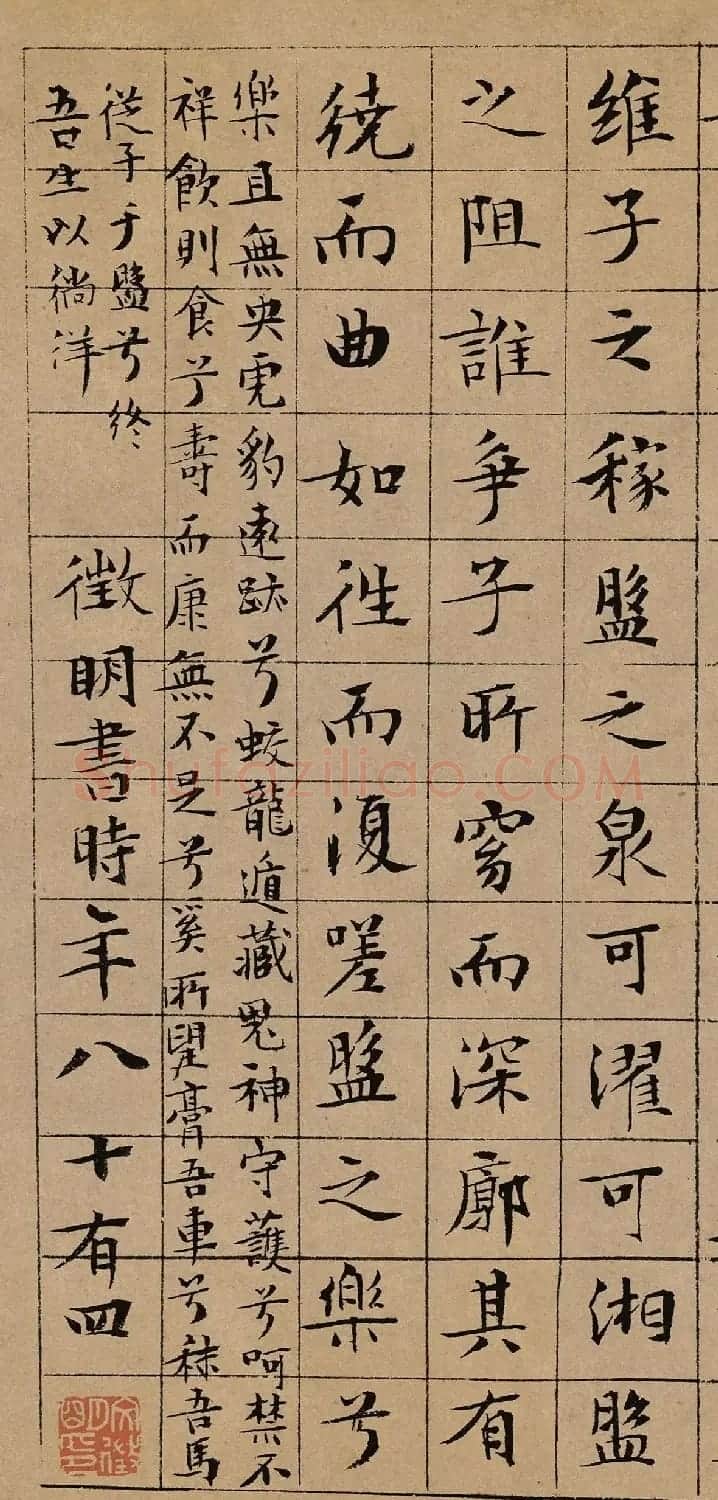 維子之稼盤之泉可濯可湘盤
之阻誰爭子所窈而深廓其有
繞而曲如往而復嗟盤之樂兮
樂且無央虎豹遠跡兮蛟龍遁藏鬼神守護兮呵禁不
祥飲則食兮壽而康無不足兮奚所望膏吾車兮秣吾馬
從子于盤兮終
吾生以徜洋
徵明書時年八十有四
文徵明印
Shufaziliao.COM